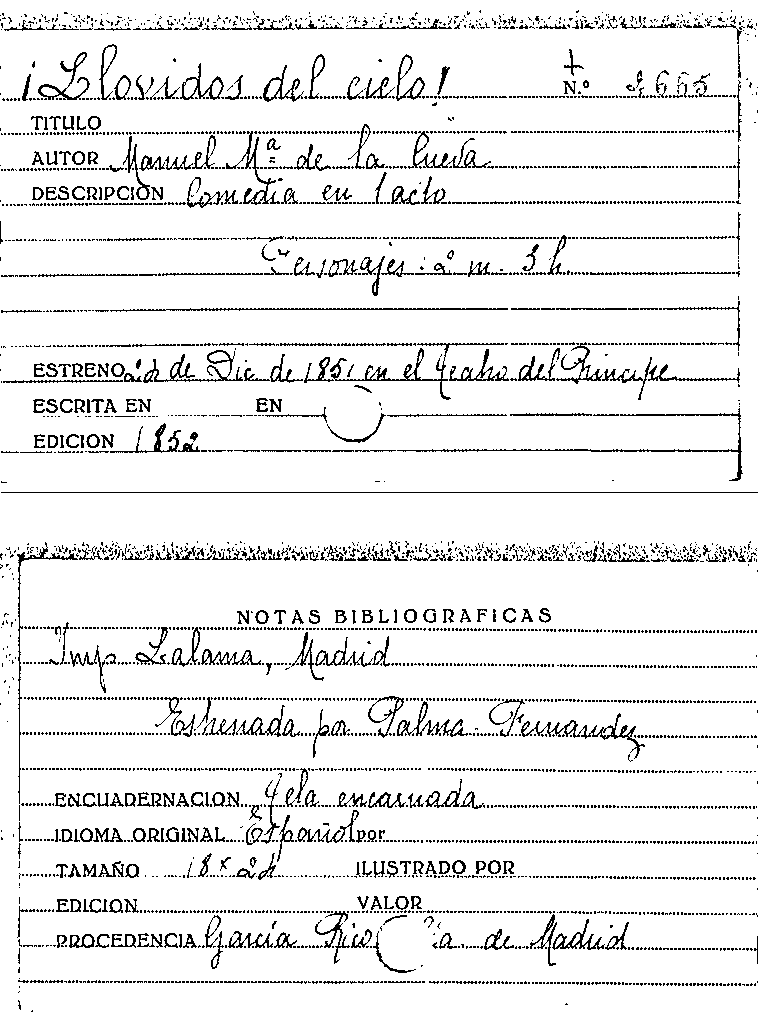 ¡Llovidos del cielo! + N.º 2665
TITULO
AUTOR Manuel Mª de la Cueva
DESCRIPCIÓN Comedia en 1 acto
Personajes: 2 m. 3 h.
ESTRENO 24 de Dic de 1851 en el Teatro del Principe
ESCRITA EN EN
EDICION 1852
NOTAS BIBLIOGRAFICAS
Imp Lalama, Madrid
Estrenada por Palma-Fernandez
ENCUADERNACION Tela encarnada
IDIOMA ORIGINAL Español por
TAMAÑO 18 x 24 ILUSTRADO POR
EDICION VALOR
PROCEDENCIA García Rico de Madrid